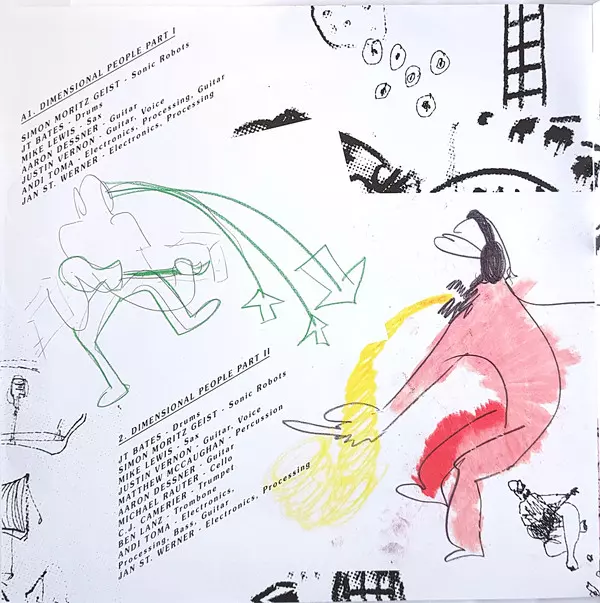 A1. DIMENSIONAL PEOPLE PART I
SIMON MORITZ GEIST - Sonic Robots
JT BATES - Drums
MIKE LEWIS - Sax
AARON DESSNER - Guitar
JUSTIN VERNON - Guitar, Voice
ANDI TOMA - Electronics, Processing, Guitar
JAN ST. WERNER - Electronics, Processing
2. DIMENSIONAL PEOPLE PART II
JT BATES - Drums
SIMON MORITZ GEIST - Sonic Robots
MIKE LEWIS - Sax
JUSTIN VERNON - Guitar, Voice
MATTHEW MCCAUGHAN - Percussion
AARON DESSNER - Guitar
MICHAEL RAUTER - Cello
C.J. CAMERIER - Trumpet
BEN LANZ - Trombone
ANDI TOMA - Electronics,
Processing, Bass, Guitar
JAN ST. WERNER - Electronics, Processing